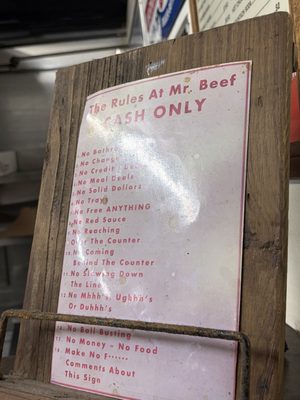 The Rules At Mr. Beef
CASH ONLY
No
No Change
No Credit
No Meal Deals
No Solid Dollars
No
No Free ANYTHING
No Red Sauce
No Reaching
Over The Counter
No Coming
Behind The Counter
11. No Slowing Down
The Line
12. No Mhhh's, Ugkhh's
Or Duhhh's
No Ball Busting
No Money - No Food
No F......
Make
Comments About
This Sign
CASH ONLY